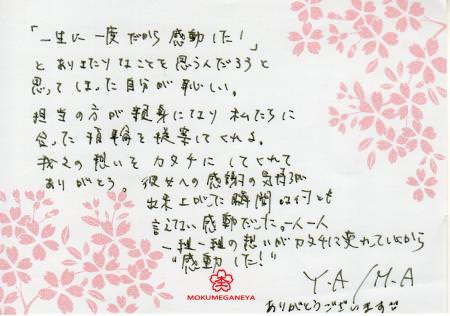 「一生に一度だから感動した！」
とありきたりなことを思うんだろうと
思ってしまった自分が恥しい。
担当の方が親身になり私たちに
合った指輪を提案してくれる。
我々の想いをカタチにしてくれて
ありがとう。彼女への感謝の気持ちが
出来上がった瞬間は何とも
言えない感動だった。一人一人
一組一組の想いがカタチに変わっていくから
"感動した！"
Y.A/M.A
ありがとうございます
MOKUMEGANEYA